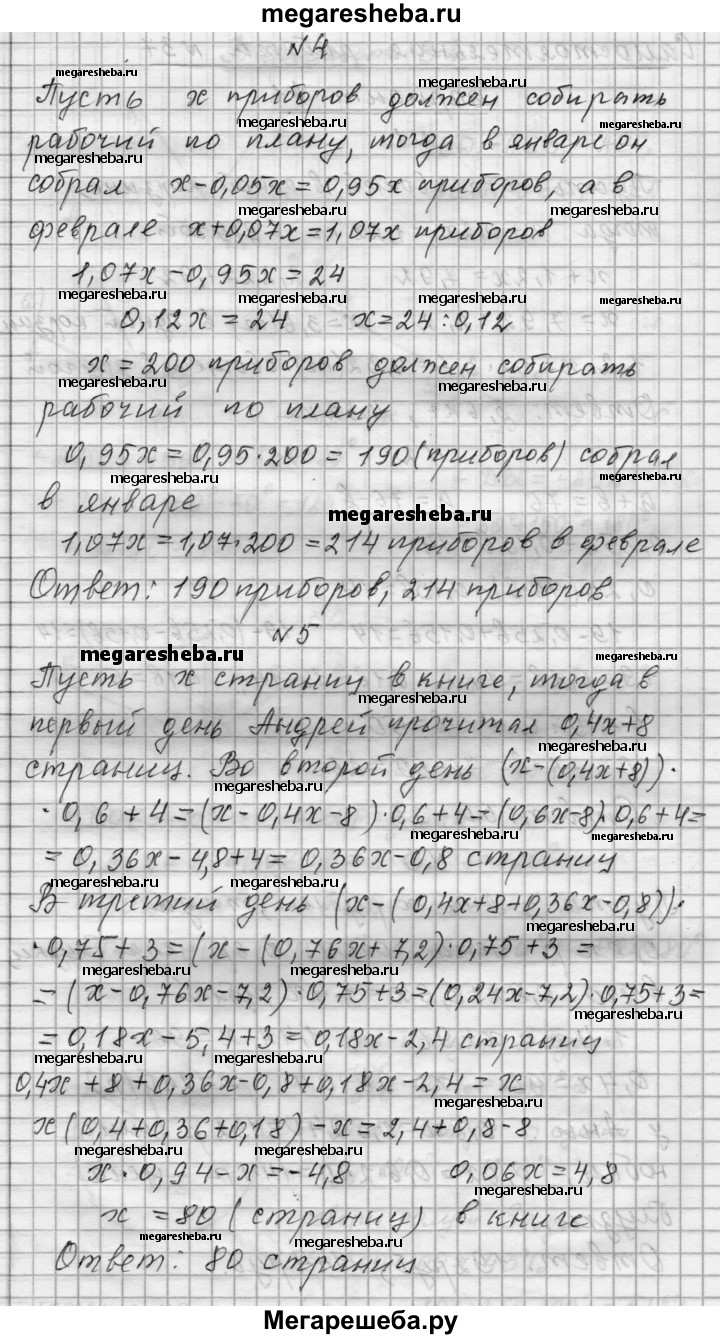 megaresheba.ru
N 4
Пусть x приборов должен собирать
рабочий по плану, тогда в январе он
собрал x-0,05x = 0,95x приборов, а в
феврале x+0,07x=1,07x приборов
1,07x-0,95x=24
0,12x = 24 x=24:0,12
x=200 приборов должен собирать
рабочий по плану
0,95x=0,95·200= 190 (приборов) собрал
в январе
megaresheba.ru
1,07x=1,07·200=214 приборов в феврале
Ответ: 190 приборов, 214 приборов
N 5
megaresheba.ru
Пусть x страниц в книге, тогда в
первый день Андрей прочитал 0,4x+8
страниц. Во второй день (x-(0,4x+8))·
·0,6+4=(x-0,4x-8)·0,6+4=(0,6x-8)·0,6+4=
= 0,36x-4,8+4= 0,36x-0,8 страниц
В третий день (x-(0,4x+8+0,36x-0,8))·
·0,75+3=(x-(0,76x+7,2)·0,75+3 =
=(x-0,76x-7,2)·0,75+3=(0,24x-7,2)·0,75+3=
=0,18x-5,4+3=0,18x-2,4 страниц
0,4x+8+0,36x-0,8+0,18x-2,4=x
x(0,4+0,36+0,18)-x=2,4+0,8-8
x·0,94-x=-4,8 0,06x=4,8
x =80 (страниц) в книге
Ответ: 80 страниц
Мегарешеба.ру